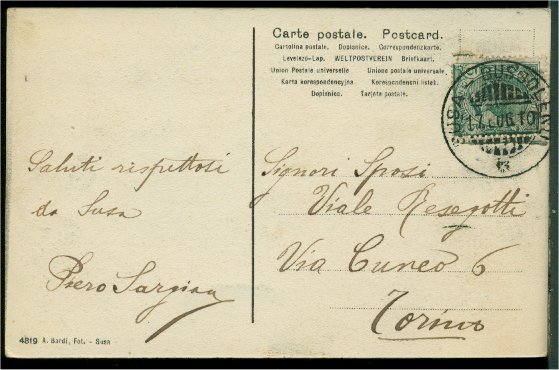 Carte postale. Postcard.
Cartolina postale. Dopisnice. Correspondenzkarte.
Levelezo-Lap. WELTPOSTVEREIN Briefkaart.
Union Postale universelle Unione postale universale.
Karta korespondencyjna. Korespondencni listek.
Dopisnico. Tarjeta postale.
Saluti rispettosi
da Susa
Piero
Signori Sposi
Viale Resegotti
Via Cuneo 6
Torino
4819 A. Bardi, Fot. - Susa